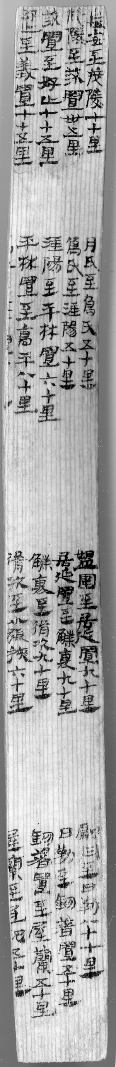 長安至茂陵七十里
茂陵至茯置卅五里
茯置至好止七十五里
好止至義置七十五里
月氏至烏氏五十里
烏氏至涇陽五十里
涇陽至平林置六十里
平林置至高平八十里
媼圍至居延置九十里
居延置至觻裏九十里
觻裏至揟次九十里
揟次至小張掖六十里
刪丹至日勒八十七里
日勒至鈞著置五十里
鈞著置至屋蘭五十里
屋蘭至氐池五十里